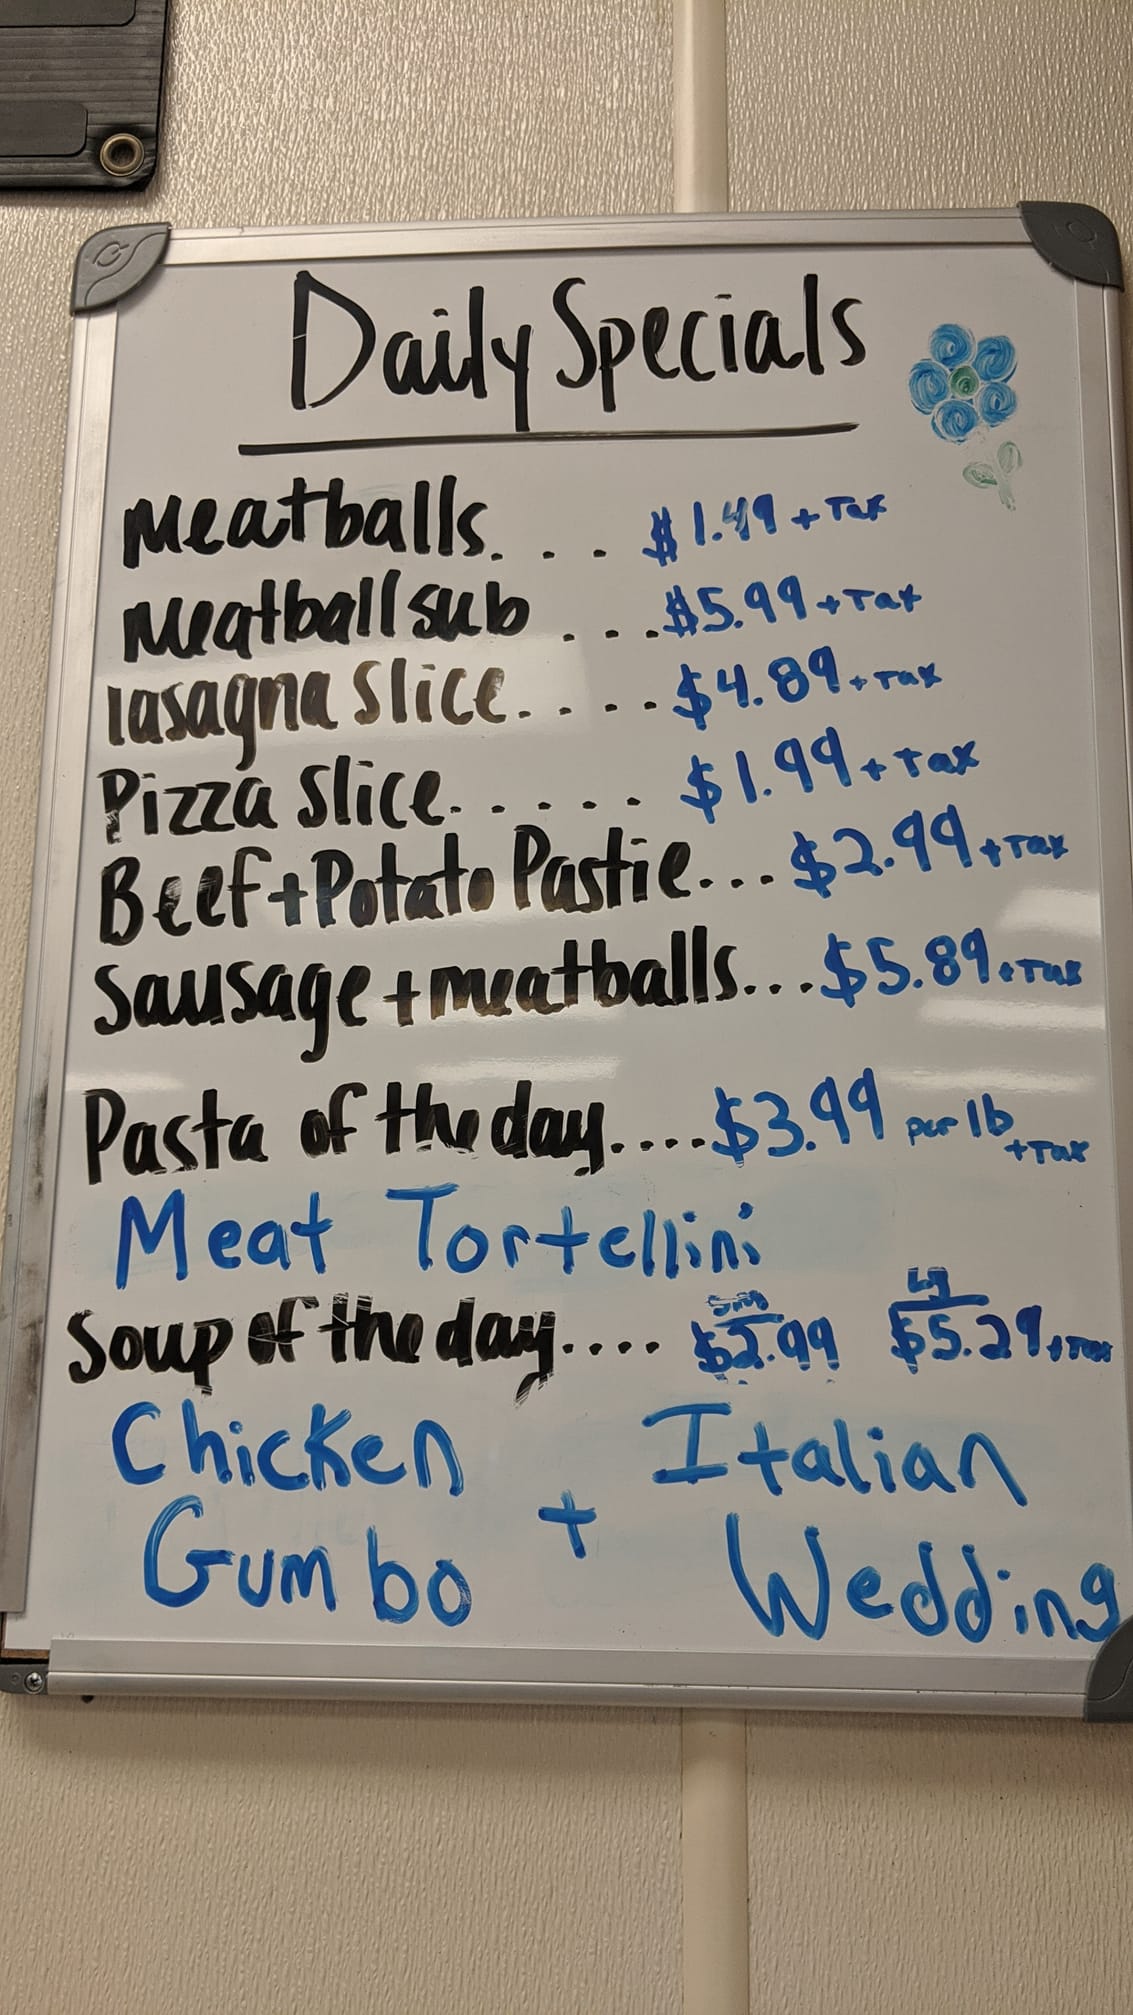 Daily Specials
Meatballs. . . . $1.49 + Tax
Meatball sub . . . . $5.99 + Tax
lasagna slice. . . . . $4.89 + Tax
Pizza slice. . . . . . $1.99 + Tax
Beef + Potato Pastie... $2.99 + Tax
Sausage + meatballs... $5.89 + Tax
Pasta of the day.... $3.99 per lb + Tax
Meat Tortellini
Sm Lg
Soup of the day.... $2.99 $5.29 + Tax
Chicken + Italian
Gumbo Wedding